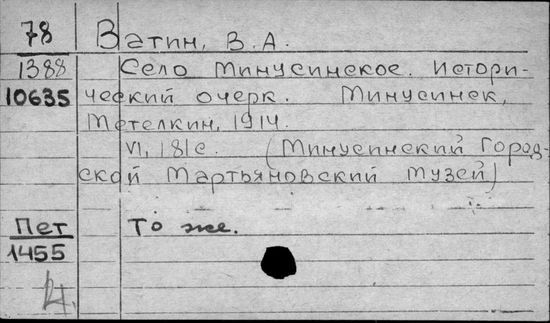 78 Ватин, В.А.
1388 Село Минусинское. Истори-
10635 ческий очерк. Минусинск,
Метелкин, 1914.
VI, 181с. (Минусинский город-
ской Мартьяновский музей)
Пет То же.
1455